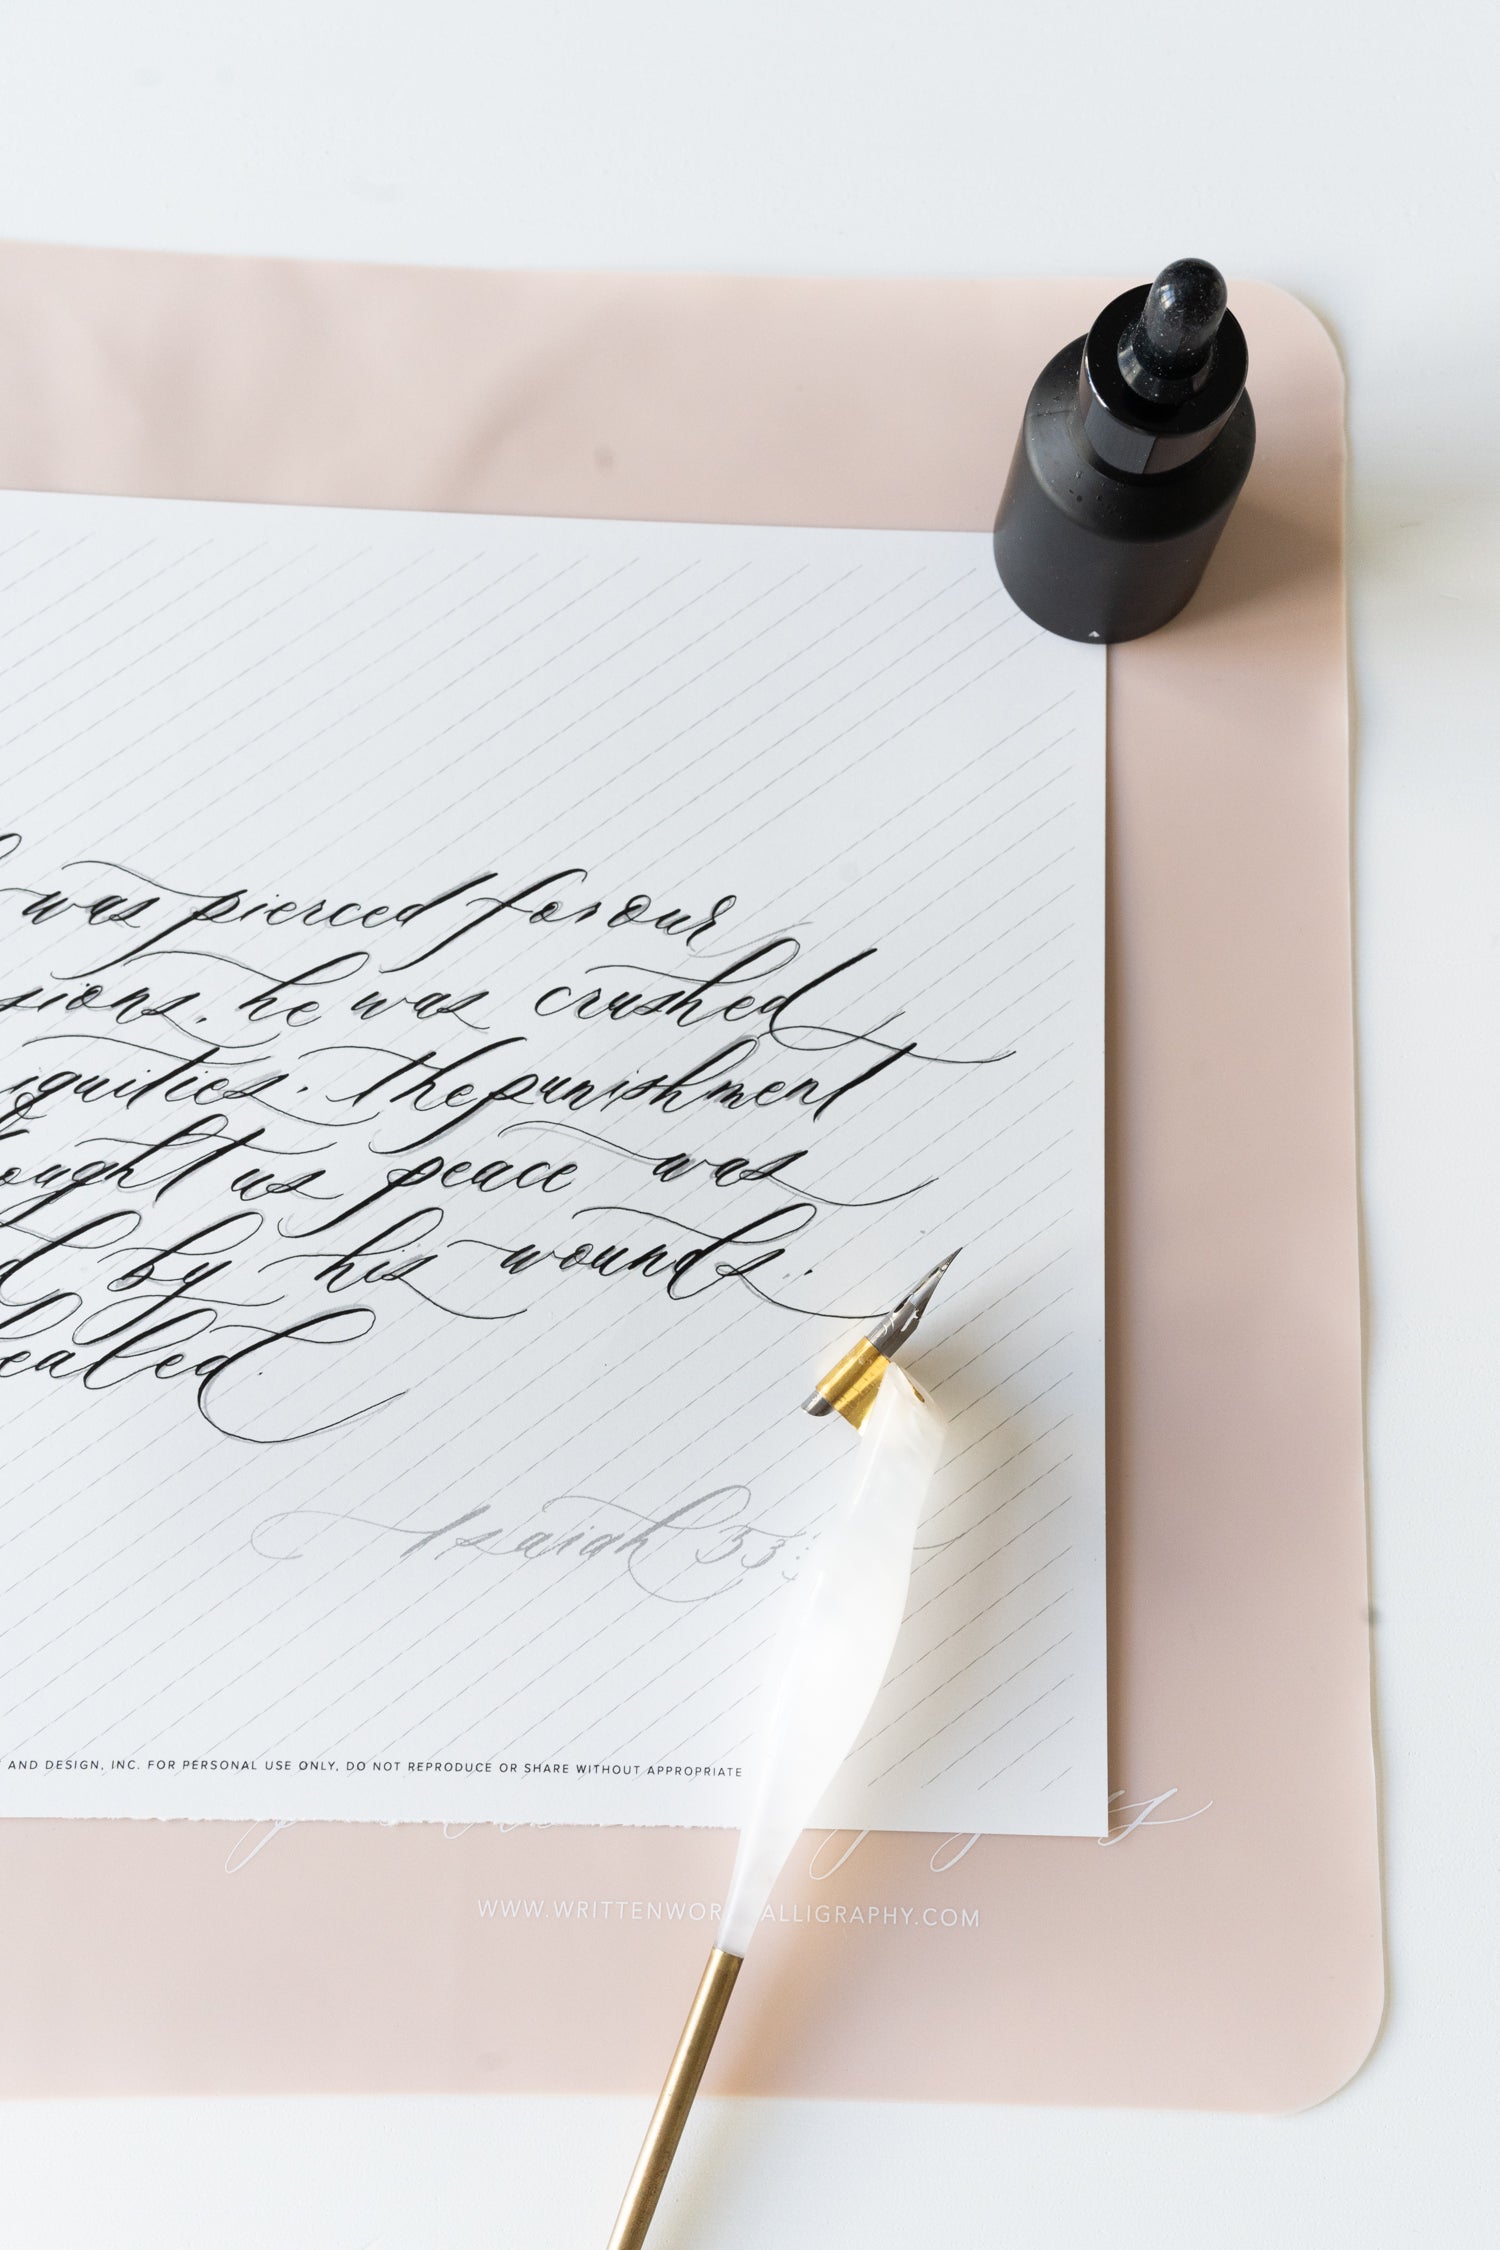 was pierced for our
sions, he was crushed
iquities. the punishment
ought us peace was
d by his wounds.
ealed.
Isaiah 53:
AND DESIGN, INC. FOR PERSONAL USE ONLY, DO NOT REPRODUCE OR SHARE WITHOUT APPROPRIATE
WWW.WRITTENWOR ALLIGRAPHY.COM